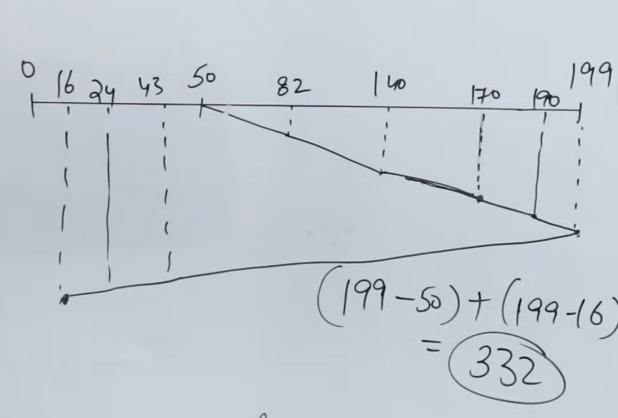 0 16 24 43 50 82 140 170 190 199
(199-50)+(199-16)
= 332